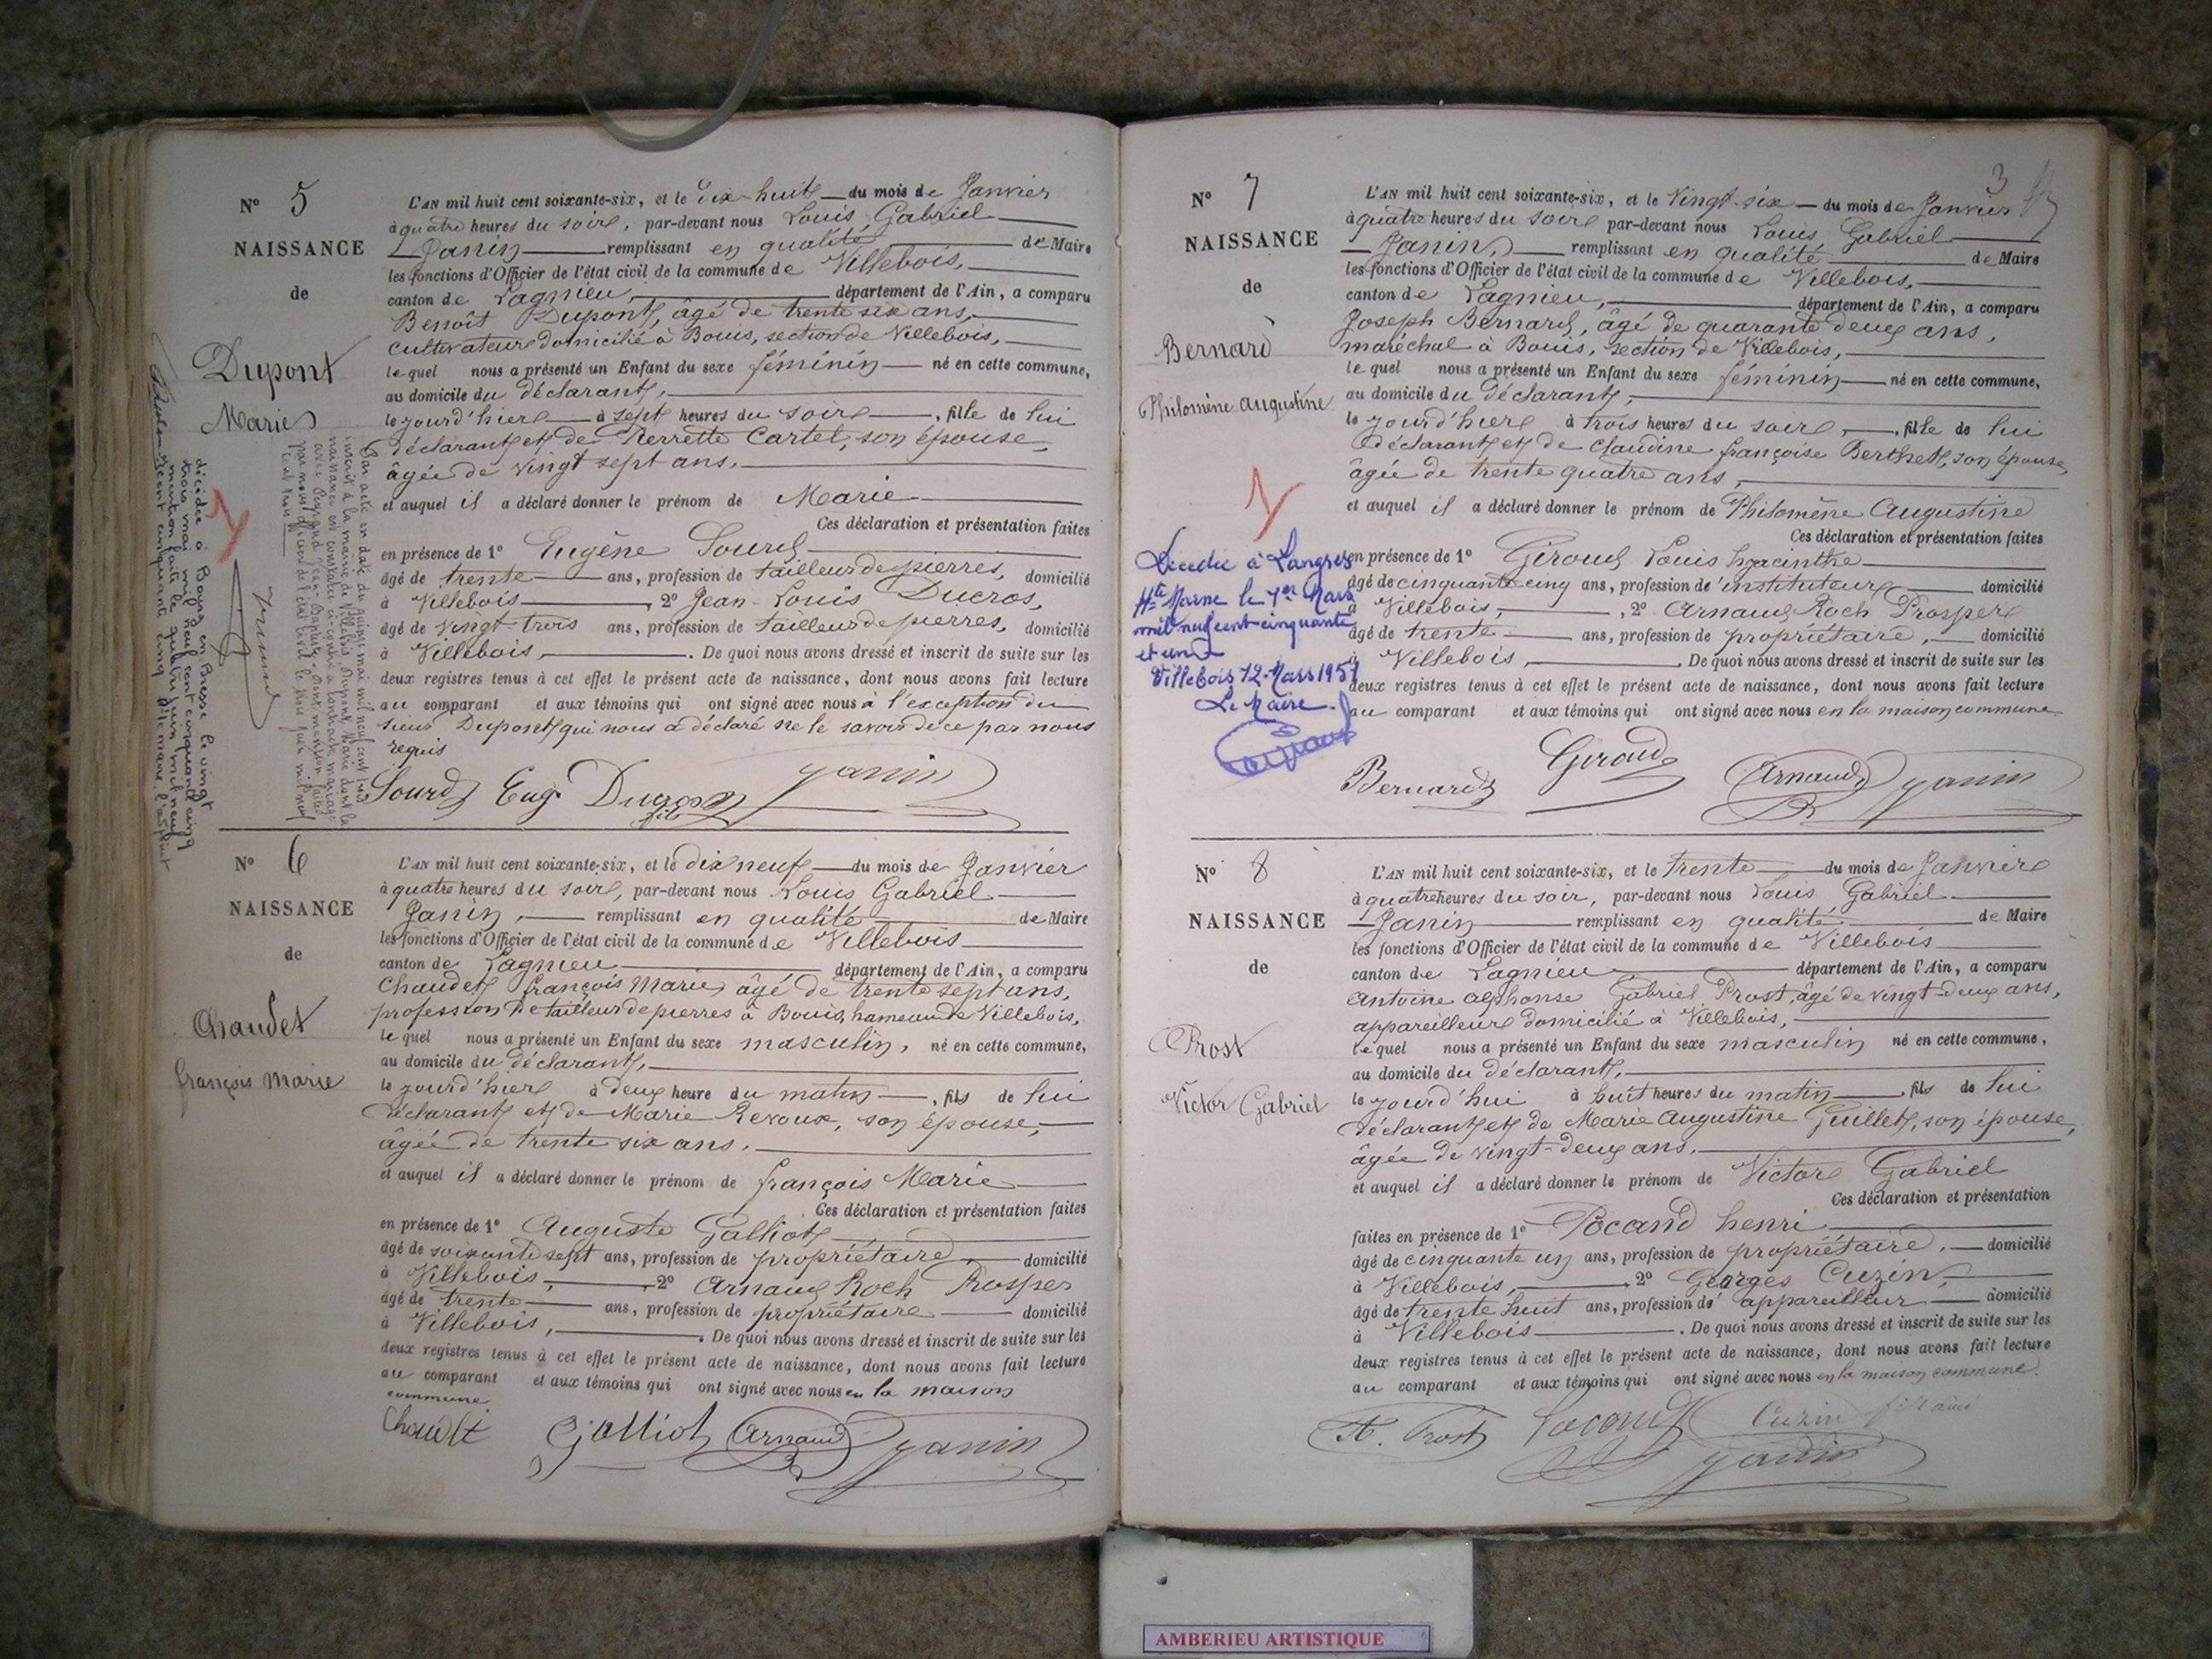 N° 5
NAISSANCE
de
Dupont
Marie
L'AN mil huit cent soixante-six, et le dix-huit du mois de Janvier
à quatre heures du soir, par-devant nous Louis Gabriel
Janin remplissant en qualité de Maire
les fonctions d'Officier de l'état civil de la commune de Villebois,
canton de Lagnieu, département de l'Ain, a comparu
Benoît Dupont, âgé de trente six ans,
cultivateur domicilié à Bouis, section de Villebois,
lequel nous a présenté un Enfant du sexe féminin né en cette commune,
au domicile du déclarant,
le jourd'hier à sept heures du soir, fille de lui
déclarant et de Pierrette Cartel, son épouse,
âgée de vingt sept ans.
et auquel il a déclaré donner le prénom de Marie
Ces déclaration et présentation faites
en présence de 1° Eugène Sourd
âgé de trente ans, profession de tailleur de pierres, domicilié
à Villebois, 2° Jean-Louis Ducros,
âgé de vingt-trois ans, profession de tailleur de pierres, domicilié
à Villebois, . De quoi nous avons dressé et inscrit de suite sur les
deux registres tenus à cet effet le présent acte de naissance, dont nous avons fait lecture
au comparant et aux témoins qui ont signé avec nous à l'exception du
sieur Dupont qui nous a déclaré ne le savoir de ce par nous
requis
Sourd Eug. Ducros fils Janin
Par acte en date du quinze mai mil neuf cent
inscrit à la mairie de Villebois Dupont Marie dont la
naissance est constatée ci-contre a contracté mariage
avec Jean-Baptiste. Dont mention faite
par nous officier de l'état civil le trois juin mil neuf
cent
décédée à Bourg en Bresse le vingt
trois mai mil neuf cent cinquante cinq
mention faite le quatre juin mil neuf
cent cinquante cinq
N° 6
NAISSANCE
de
Chaudet
françois marie
L'AN mil huit cent soixante-six, et le dix neuf du mois de Janvier
à quatre heures du soir, par-devant nous Louis Gabriel
Janin, remplissant en qualité de Maire
les fonctions d'Officier de l'état civil de la commune de Villebois
canton de Lagnieu département de l'Ain, a comparu
Chaudet françois Marie, âgé de trente sept ans,
profession de tailleur de pierres à Bouis, hameau de Villebois,
lequel nous a présenté un Enfant du sexe masculin, né en cette commune,
au domicile du déclarant,
le jourd'hier à deux heure du matin, fils de lui
déclarant et de Marie Revoux, son épouse,
âgée de trente six ans.
et auquel il a déclaré donner le prénom de françois Marie
Ces déclaration et présentation faites
en présence de 1° Auguste Galliot
âgé de soixante sept ans, profession de propriétaire domicilié
à Villebois, 2° Arnaud Roch Prosper
âgé de trente ans, profession de propriétaire domicilié
à Villebois, . De quoi nous avons dressé et inscrit de suite sur les
deux registres tenus à cet effet le présent acte de naissance, dont nous avons fait lecture
au comparant et aux témoins qui ont signé avec nous en la maison
commune
Chaudet Galliot Arnaud Janin
3
N° 7
NAISSANCE
de
Bernard
Philomène augustine
L'AN mil huit cent soixante-six, et le vingt-six du mois de Janvier
à quatre heures du soir par-devant nous Louis Gabriel
Janin, remplissant en qualité de Maire
les fonctions d'Officier de l'état civil de la commune de Villebois,
canton de Lagnieu, département de l'Ain, a comparu
Joseph Bernard, âgé de quarante deux ans,
maréchal à Bouis, section de Villebois,
lequel nous a présenté un Enfant du sexe féminin né en cette commune,
au domicile du déclarant,
le jourd'hier à trois heures du soir, fille de lui
déclarant et de Claudine françoise Berthet, son épouse,
âgée de trente quatre ans,
et auquel il a déclaré donner le prénom de Philomène Augustine
Ces déclaration et présentation faites
en présence de 1° Giroud Louis hyacinthe
âgé de cinquante cinq ans, profession d'instituteur domicilié
à Villebois, , 2° Arnaud Roch Prosper
âgé de trente ans, profession de propriétaire, domicilié
à Villebois, . De quoi nous avons dressé et inscrit de suite sur les
deux registres tenus à cet effet le présent acte de naissance, dont nous avons fait lecture
au comparant et aux témoins qui ont signé avec nous en la maison commune
Bernard Giroud Arnaud Janin
Décédée à Langres
Hte Marne le 1er Mars
mil neuf cent cinquante
et un
Villebois 12 Mars 1951
Le Maire.
N° 8
NAISSANCE
de
Prost
Victor Gabriel
L'AN mil huit cent soixante-six, et le trente du mois de Janvier
à quatre heures du soir, par-devant nous Louis Gabriel
Janin remplissant en qualité de Maire
les fonctions d'Officier de l'état civil de la commune de Villebois
canton de Lagnieu département de l'Ain, a comparu
antoine alphonse Gabriel Prost, âgé de vingt-deux ans,
appareilleur domicilié à Villebois,
lequel nous a présenté un Enfant du sexe masculin né en cette commune,
au domicile du déclarant,
le jourd'hui à huit heures du matin, fils de lui
déclarant et de Marie Augustine Guillet, son épouse,
âgée de vingt-deux ans.
et auquel il a déclaré donner le prénom de Victor Gabriel
Ces déclaration et présentation
faites en présence de 1° Pocand henri
âgé de cinquante un ans, profession de propriétaire, domicilié
à Villebois, 2° Georges Cuzin,
âgé de trente huit ans, profession de appareilleur domicilié
à Villebois . De quoi nous avons dressé et inscrit de suite sur les
deux registres tenus à cet effet le présent acte de naissance, dont nous avons fait lecture
au comparant et aux témoins qui ont signé avec nous en la maison commune.
A. Prost Pocand Cuzin fils ainé
Janin
AMBERIEU ARTISTIQUE